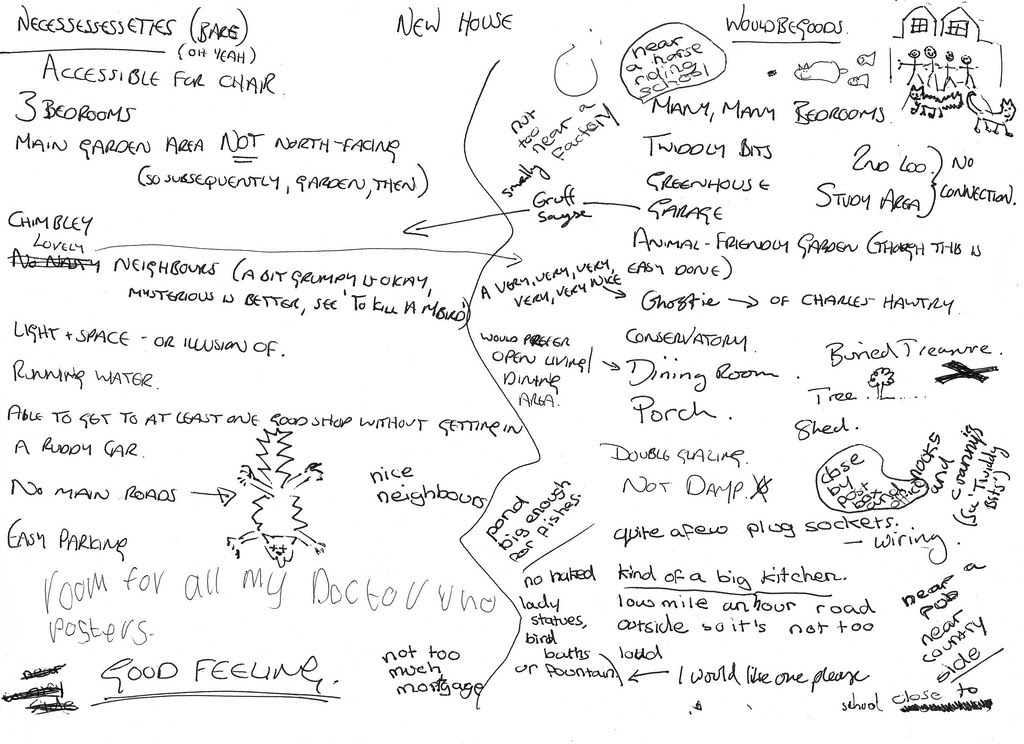 NECESSESSESSETTES (BARE)
(OH YEAH)
ACCESSIBLE FOR CHAIR.
3 BEDROOMS
MAIN GARDEN AREA NOT NORTH-FACING
(SO SUBSEQUENTLY, GARDEN, THEN)
CHIMBLEY
LOVELY
NO NASTY NEIGHBOURS (A BIT GRUMPY IS OKAY,
MYSTERIOUS IS BETTER, SEE 'TO KILL A MBIRD')
LIGHT + SPACE - OR ILLUSION OF.
RUNNING WATER.
ABLE TO GET TO AT LEAST ONE GOOD SHOP WITHOUT GETTING IN
A RUDDY CAR.
NO MAIN ROADS
EASY PARKING
nice
neighbours
room for all my Doctor who
posters.
near
country
side
GOOD FEELING.
not too
much
mortgage
NEW HOUSE
WOULDBEGOODS.
near
a horse
riding
school
not
too
near a
factory
smelly
MANY, MANY BEDROOMS.
TWIDDLY BITS
GREENHOUSE
Gruff
Sayse
GARAGE
2ND LOO.
STUDY AREA
NO
CONNECTION.
ANIMAL-FRIENDLY GARDEN (THOUGH THIS IS
EASY DONE)
A VERY, VERY, VERY,
VERY, VERY NICE
Ghostie → OF CHARLES HAWTRY
CONSERVATORY.
WOULD PREFER
OPEN LIVING/
DINING
AREA.
Dining Room.
Porch.
Buried Treasure.
Tree.
Shed.
DOUBLE GLAZING.
NOT DAMP.
close
by
post
box
and
office
nooks
and
crannys
(see 'Twiddy
Bits')
pond
big enough
for fishes
quite a few plug sockets.
- wiring.
kind of a big kitchen.
low mile an hour road
outside so it's not too
loud
no naked
lady
statues,
bird
baths
or fountain
I would like one please
near a
pub
near
country
side
school close to